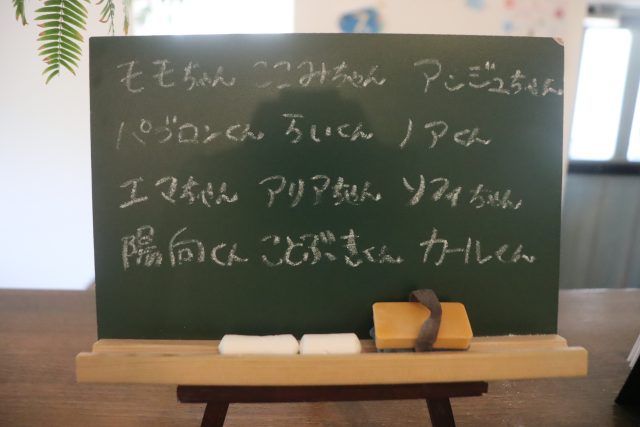 モモちゃん ここみちゃん アンジュちゃん
パブロンくん らいくん ノアくん
エマちゃん アリアちゃん ソフィちゃん
陽向くん ことぶきくん カールくん